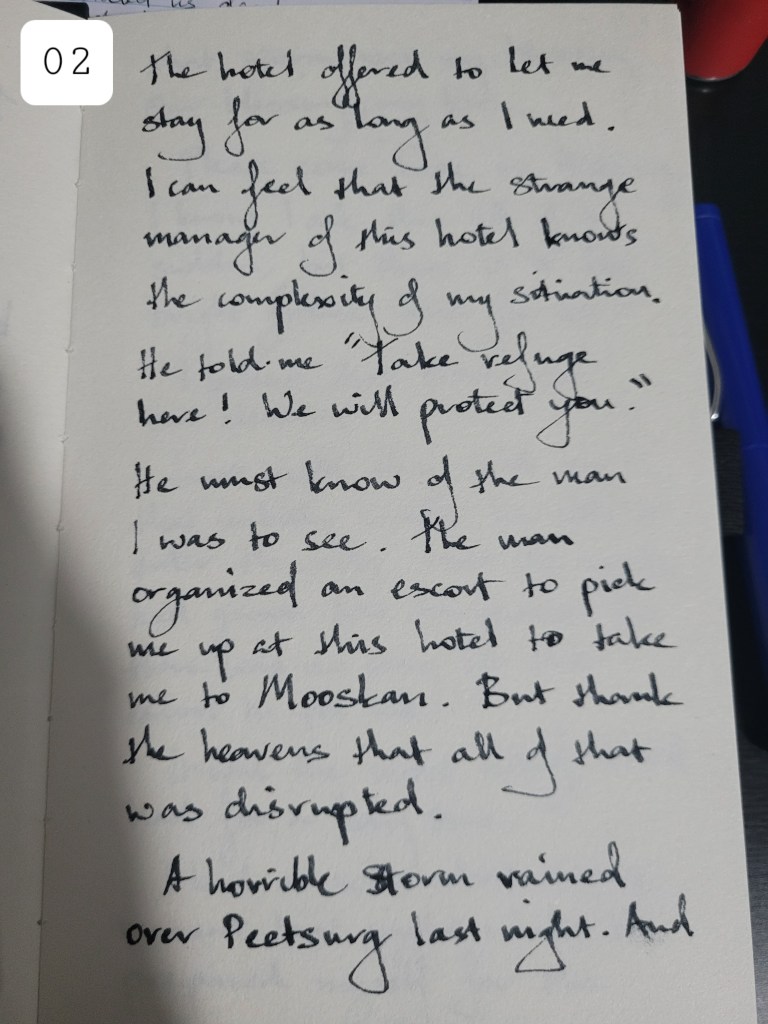 02
The hotel offered to let me
stay for as long as I need.
I can feel that the strange
manager of this hotel knows
the complexity of my situation.
He told me "Take refuge
here! We will protect you."
He must know of the man
I was to see. The man
organized an escort to pick
me up at this hotel to take
me to Mooskan. But thank
the heavens that all of that
was disrupted.
A horrible storm rained
over Peetsurg last night. And